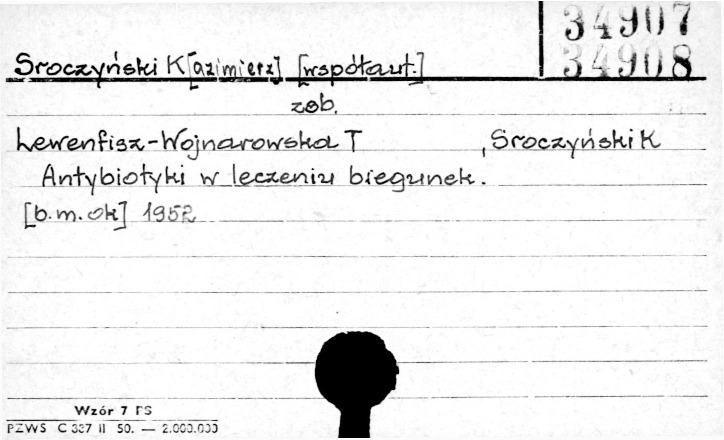 34907
34908
Sroczyński K[azimierz] [współaut.]
zob.
Lewenfisz-Wojnarowska T , Sroczyński K
Antybiotyki w leczeniu biegunek.
[b.m.ok] 1952
Wzór 7 PS
PZWS C 337 II 50. — 2.000.000